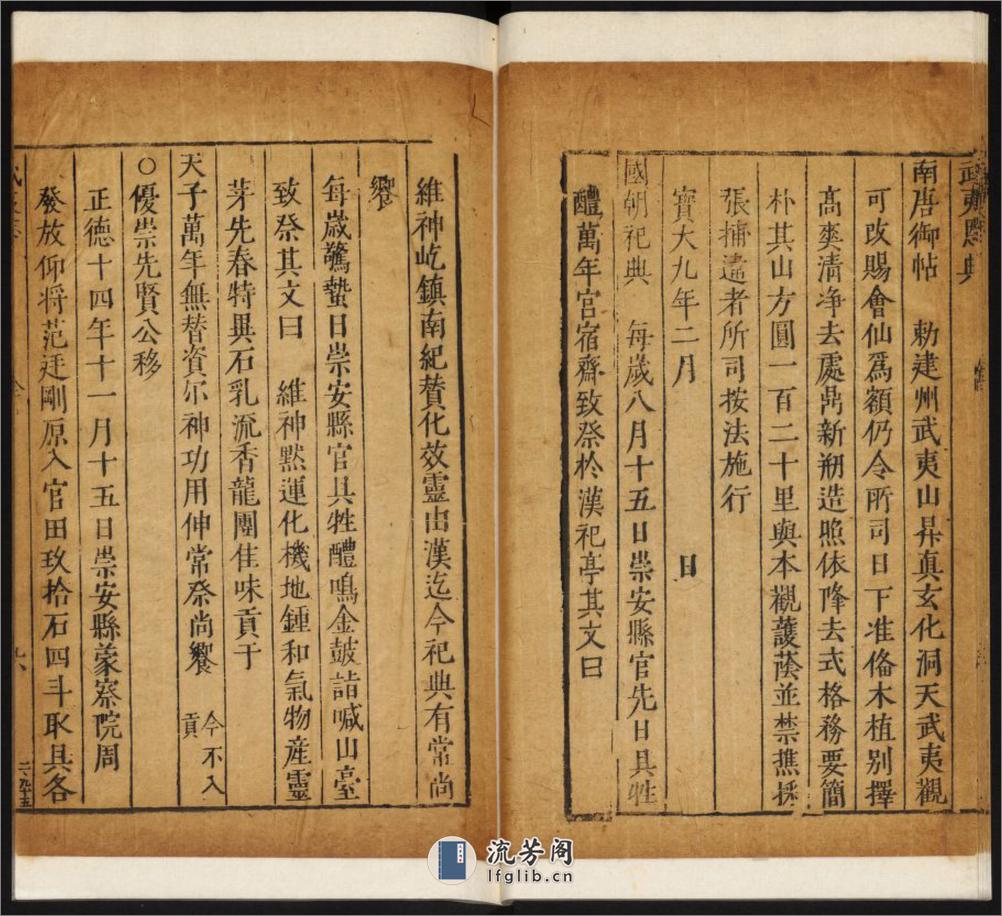 武夷
典
南唐御帖　勅建州武夷山昇真玄化洞天武夷觀
可改賜會仙爲額仍令所司日下准俻木植别擇
高爽清净去處鼎新剏造照依降去式格務要簡
朴其山方圓一百二十里與本觀護蔭並禁樵採
張捕違者所司按法施行
寶大九年二月　　日
國朝祀典　每歲八月十五日崇安縣官先日具牲
醴萬年宮宿齋致祭於漢祀亭其文曰
維神屹鎮南紀賛化效靈由漢迄今祀典有常尚
饗
每歲驚蟄日崇安縣官具牲醴鳴金鼓詣喊山臺
致祭其文曰　維神黙運化機地鍾和氣物産靈
芽先春特異石乳流香龍團佳味貢于
天子萬年無替資尔神功用伸常祭尚饗　今不入
貢
○優崇先賢公移
正德十四年十一月十五日崇安縣蒙察院周
發放仰将范廷剛原入官田玖拾石四斗取具各
流芳阁
lfglib.cn